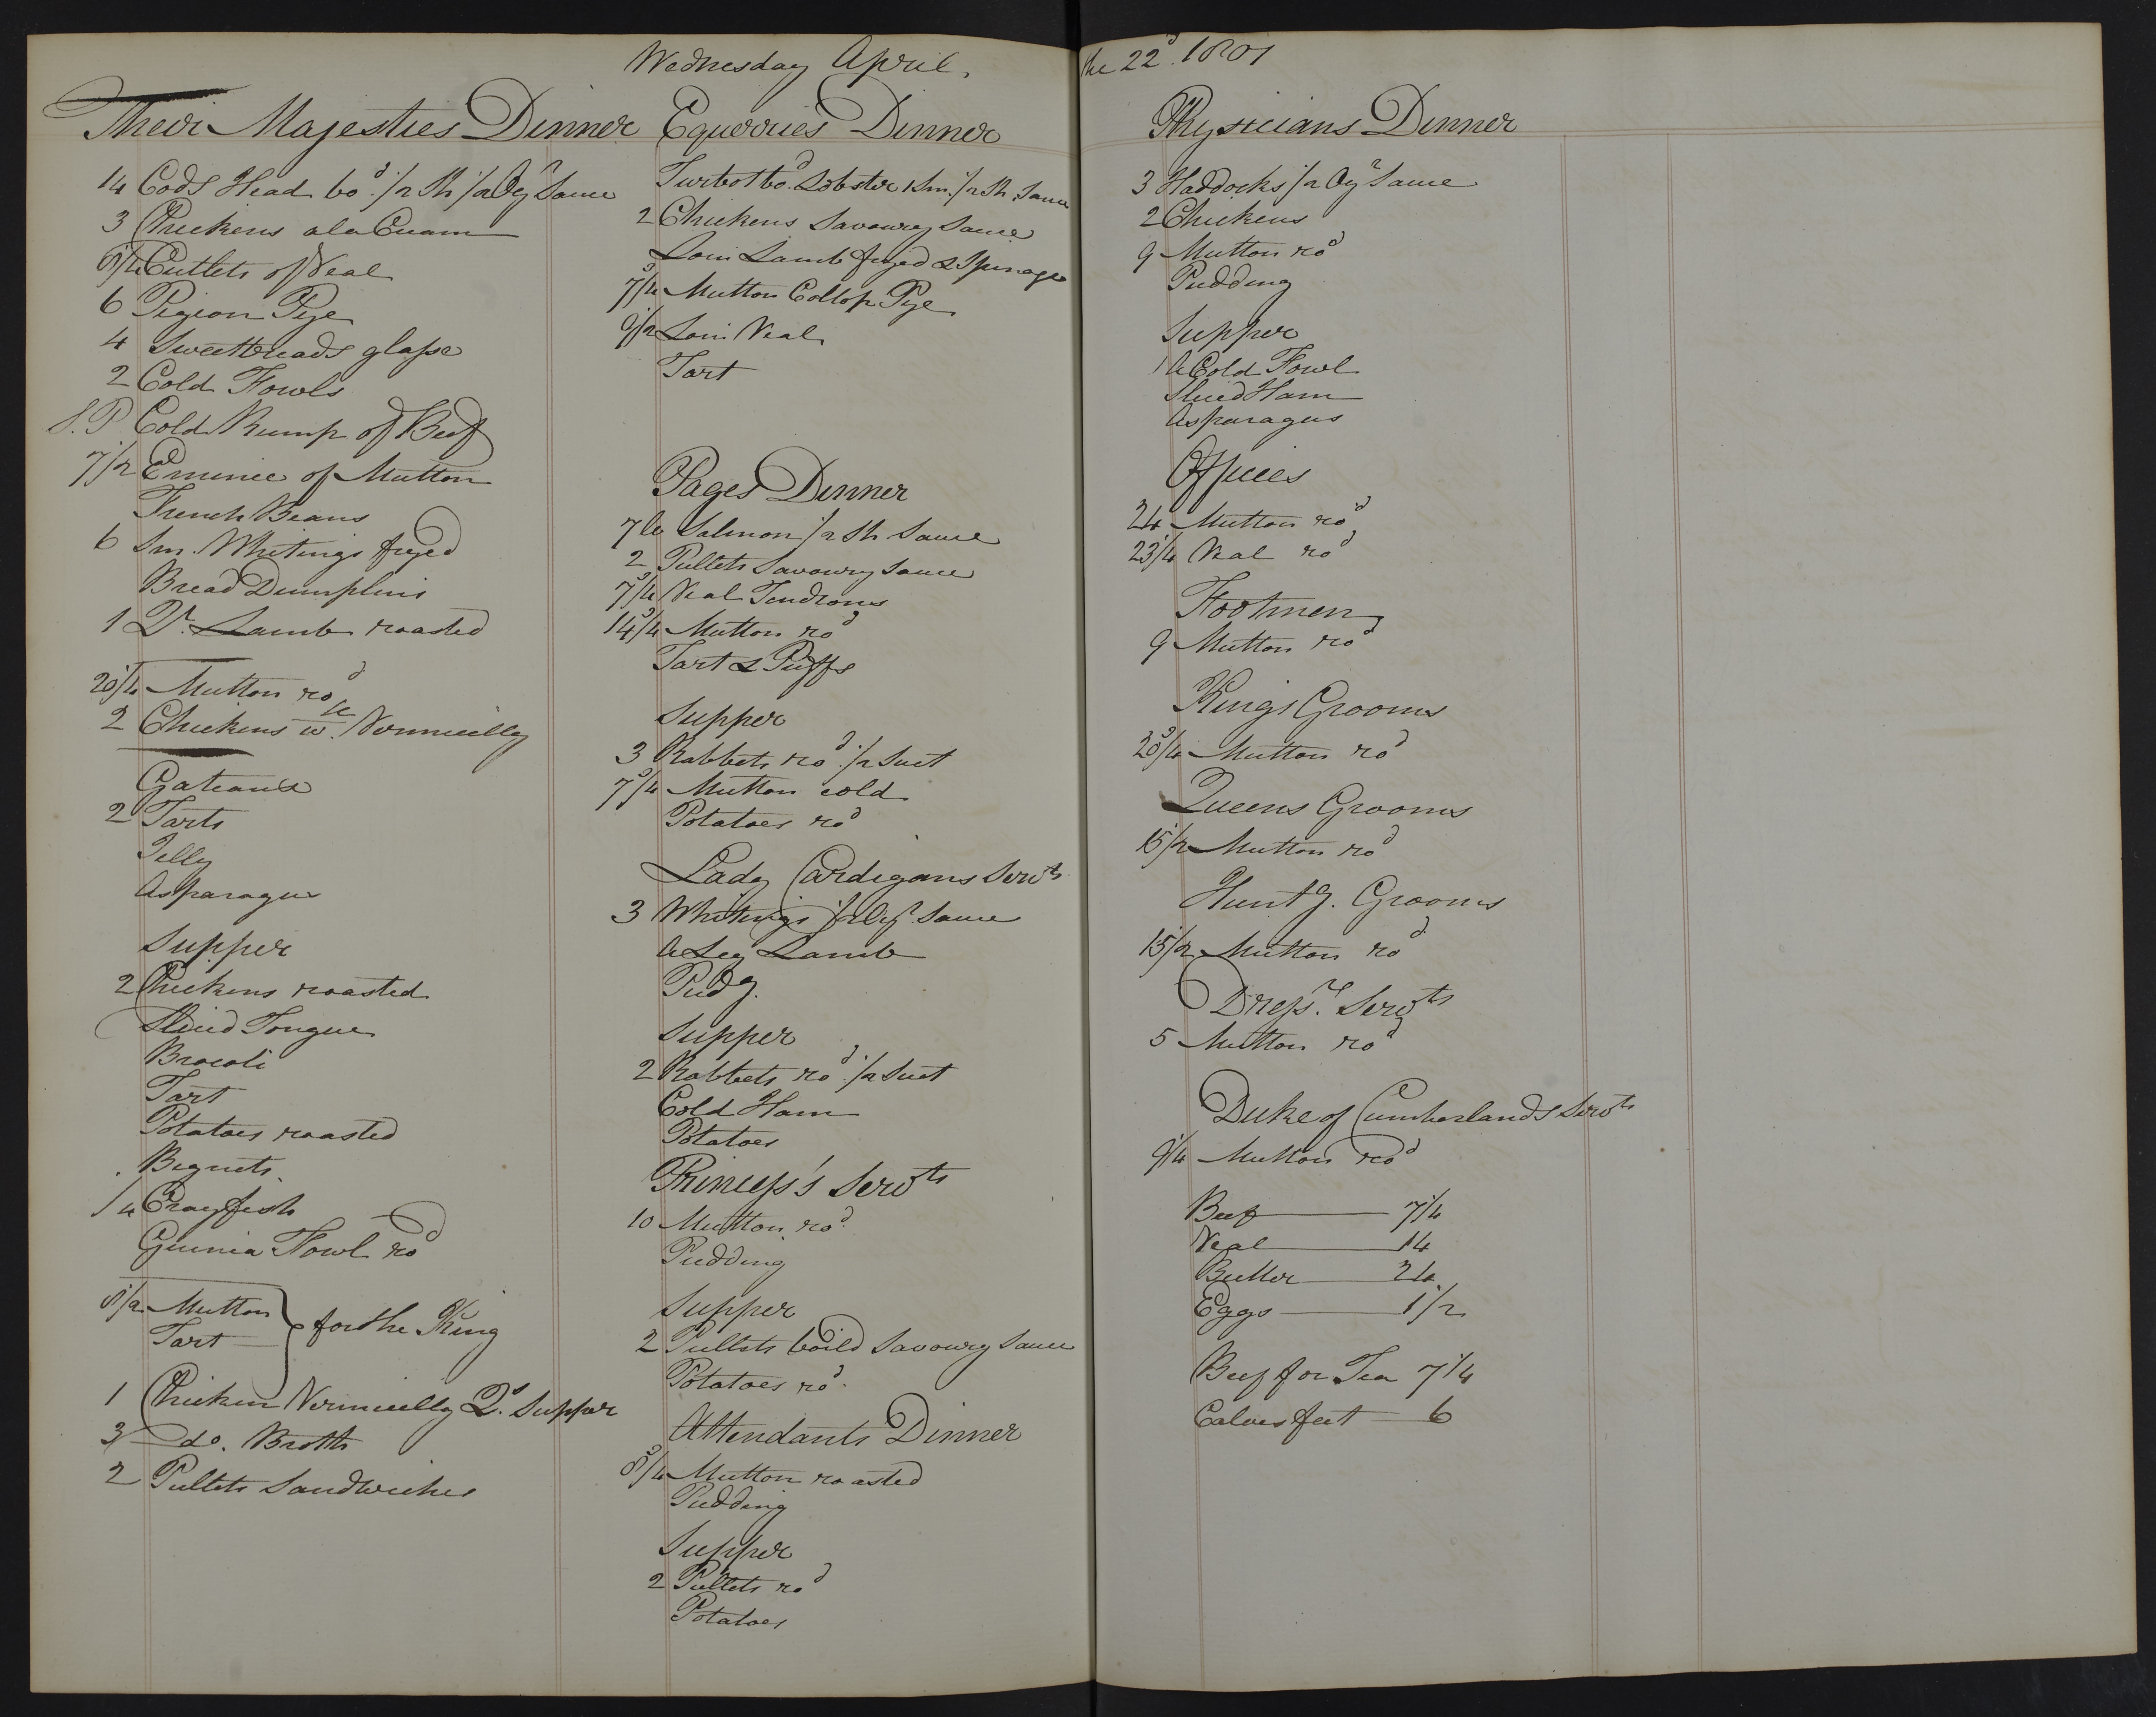 Wednesday April, the 22d. 1801
Their Majesties Dinner
14 Cods Head bod. 1/2 Sh 1/2 Oyr Sauce
3 Chickens ala Cream
8 1/4 Cutlets of Veal
6 Pigion Pye
4 Sweetbreads glasse
2 Cold Fowls
S.P Cold Rump of Beef
7 1/2 Emince of Mutton
French Beans
6 Sm. Whitings fryed
Bread Dumplins
1 Qr. Lamb roasted
20 1/4 Mutton rod
2 Chickens w. Vermicelly
Gateaux
2 Tarts
Jelly
Asparagus
Supper
2 Chickens roasted
Sliced Tongue
Brocoli
Tart
Potatoes roasted
Begnets
1/4 Crayfish
Guinia Fowl rod
8 1/2 Mutton
Tart
for the King
1 Chicken Vermicelly Qs. Supper
3 do. Broth
2 Pullets Sandwiches
Equerries Dinner
Turbot bod. Lobster 1 Sm. 1/2 Sh. Sauce
2 Chickens Savoury Sauce
Loin Lamb fryed & Spinage
7 3/4 Mutton Collop Pye
9 1/2 Loin Veal
Tart
Pages Dinner
7 lb Salmon 1/2 Sh Sauce
2 Pullets Savoury Sauce
7 3/4 Veal Tendrons
14 3/4 Mutton rod
Tart & Puffs
Supper
3 Rabbets rod. 1/2 Suet
7 3/4 Mutton cold
Potatoes rod
Lady Cardigans Servts
3 Whitings 1/2 Oyr. Sauce
A Leg Lamb
Pudg.
Supper
2 Rabbets rod 1/2 Suet
Cold Ham
Potatoes
Princess's Servts
10 Mutton rod.
Pudding
Supper
2 Pullets boild Savoury Sauce
Potatoes rod.
Attendants Dinner
8 3/4 Mutton roasted
Pudding
Supper
2 Pullets rod
Potatoes
Physicians Dinner
3 Haddocks 1/2 Oyr Sauce
2 Chickens
9 Mutton rod
Pudding
Supper
1 A Cold Fowl
Sliced Ham
Asparagus
Offices
24 Mutton rod
23 1/4 Veal rod
Footmen
9 Mutton rod
Kings Grooms
20 3/4 Mutton rod
Queens Grooms
15 1/2 Mutton rod
Huntg. Grooms
15 1/2 Mutton rod
Dressrs. Servts
5 Mutton rod
Duke of Cumberlands Servts
9 1/4 Mutton rod
Beef 7 1/4
Veal 14
Butter 24
Eggs 1/2
Beef for Tea 7 1/4
Calves feet 6